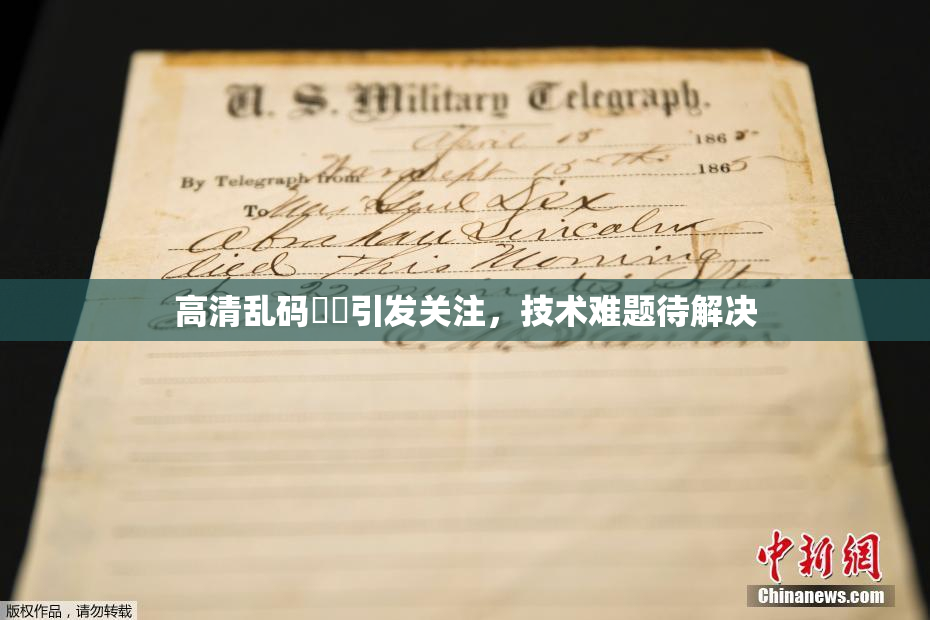 U. S. Military Telegraph.
April 15 1865
By Telegraph from War Dept 15th 1865
To Maj Genl Dix
Abraham Lincoln
died This Morning
at 22 minutes after
E. M. Stanton
高清乱码引发关注，技术难题待解决
中新网
Chinanews.com
版权作品，请勿转载